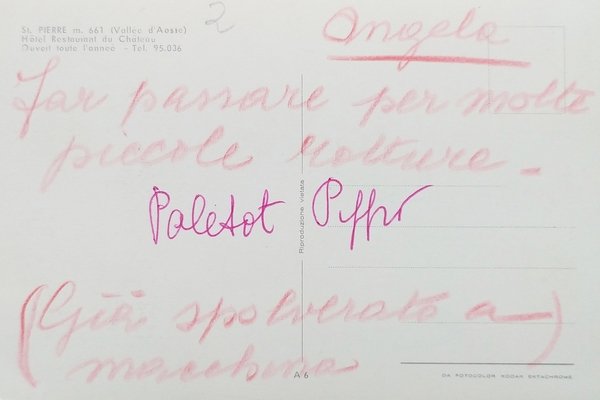 2
Angela
St. PIERRE m. 661 (Vallée d'Aoste)
Hôtel Restaurant du Château
Ouvert toute l'année - Tel. 95.036
Far passare per molte
piccole rotture -
Paletot
Riproduzione vietata
(Già spolverato a
macchina)
A 6
DA FOTOCOLOR KODAK EKTACHROME